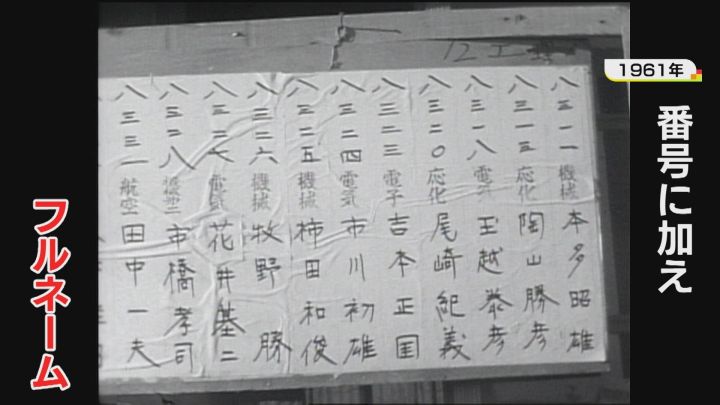 1961年
番号に加え
フルネーム
12工
八三一一 機械 本多昭雄
八三一三 応化 陶山勝彦
八三一八 電気 玉越泰彦
八三二〇 応化 尾崎紀義
八三二三 電子 吉本正国
八三二四 電気 市川初雄
八三二五 機械 柿田和俊
八三二六 機械 牧野勝
八三二七 電気 花井基二
八三二八 市橋孝司
八三三一 航空 田中一夫